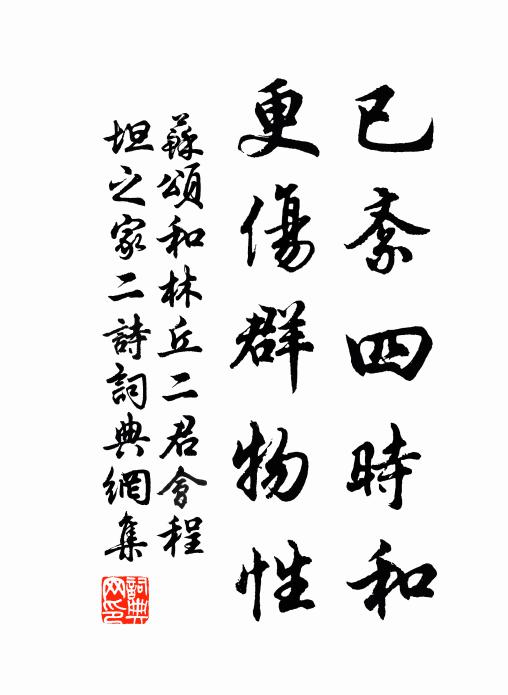 已紊四時和
更傷群物性
蘇頌和林丘二君會程
坦之家二詩詞典網集
詞典
网印